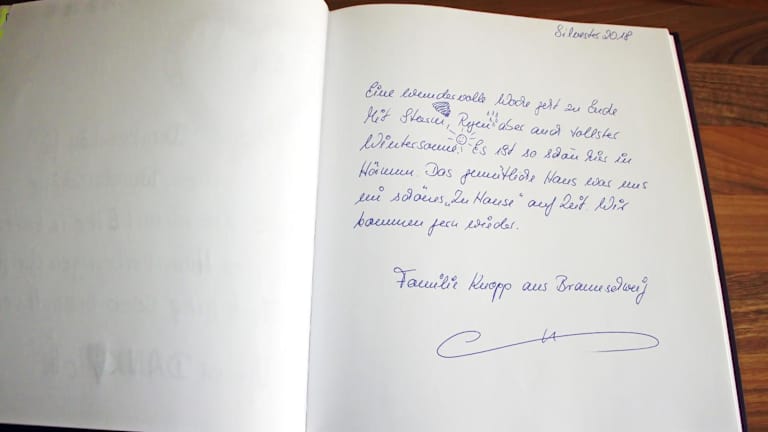 Silvester 2018
Eine wundervolle Woche geht zu Ende
Mit Sturm, Regen aber auch vollster
Wintersonne. Es ist so schön hier in
Hörnum. Das gemütliche Haus war uns
ein schönes „Zu Hause" auf Zeit. Wir
kommen gern wieder.
Familie Knopp aus Braunschweig
DANK